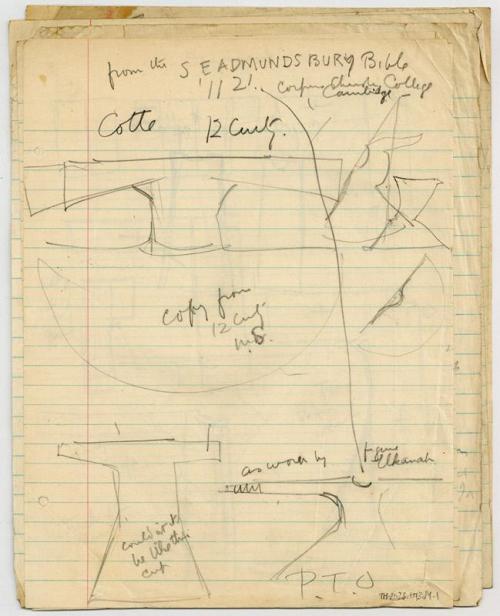 from the S EADMUNDSBURY Bible
1121.
Corpus Christi College
Cambridge
Cotte 12 Cent.
copy from
12 Cent.
M.S.
as worn by
Elkanah
couldn't it
be like this
cut
P.T.O